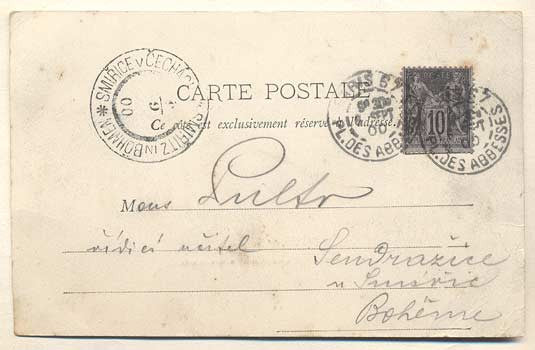 SMIŘICE v ČECHÁCH
SMIŘITZ in BÖHMEN
9
00
CARTE POSTALE
Ce côté est exclusivement réservé à l'adresse
PARIS
PL. DES ABBESSES
POSTE
10
PL. DES ABBESSES
Mons Pulto
řídící učitel
Sendražice
u Smiřic
Bohême